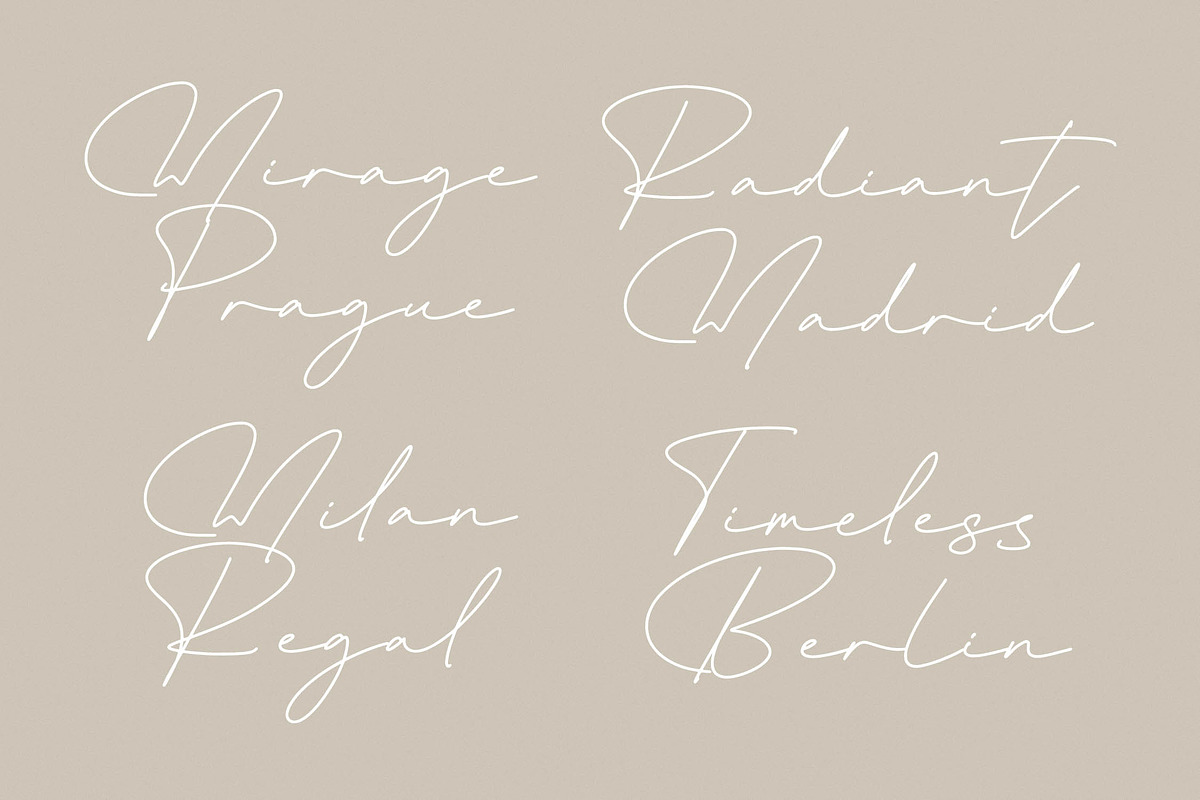 Mirage
Prague
Radiant
Madrid
Milan
Regal
Timeless
Berlin